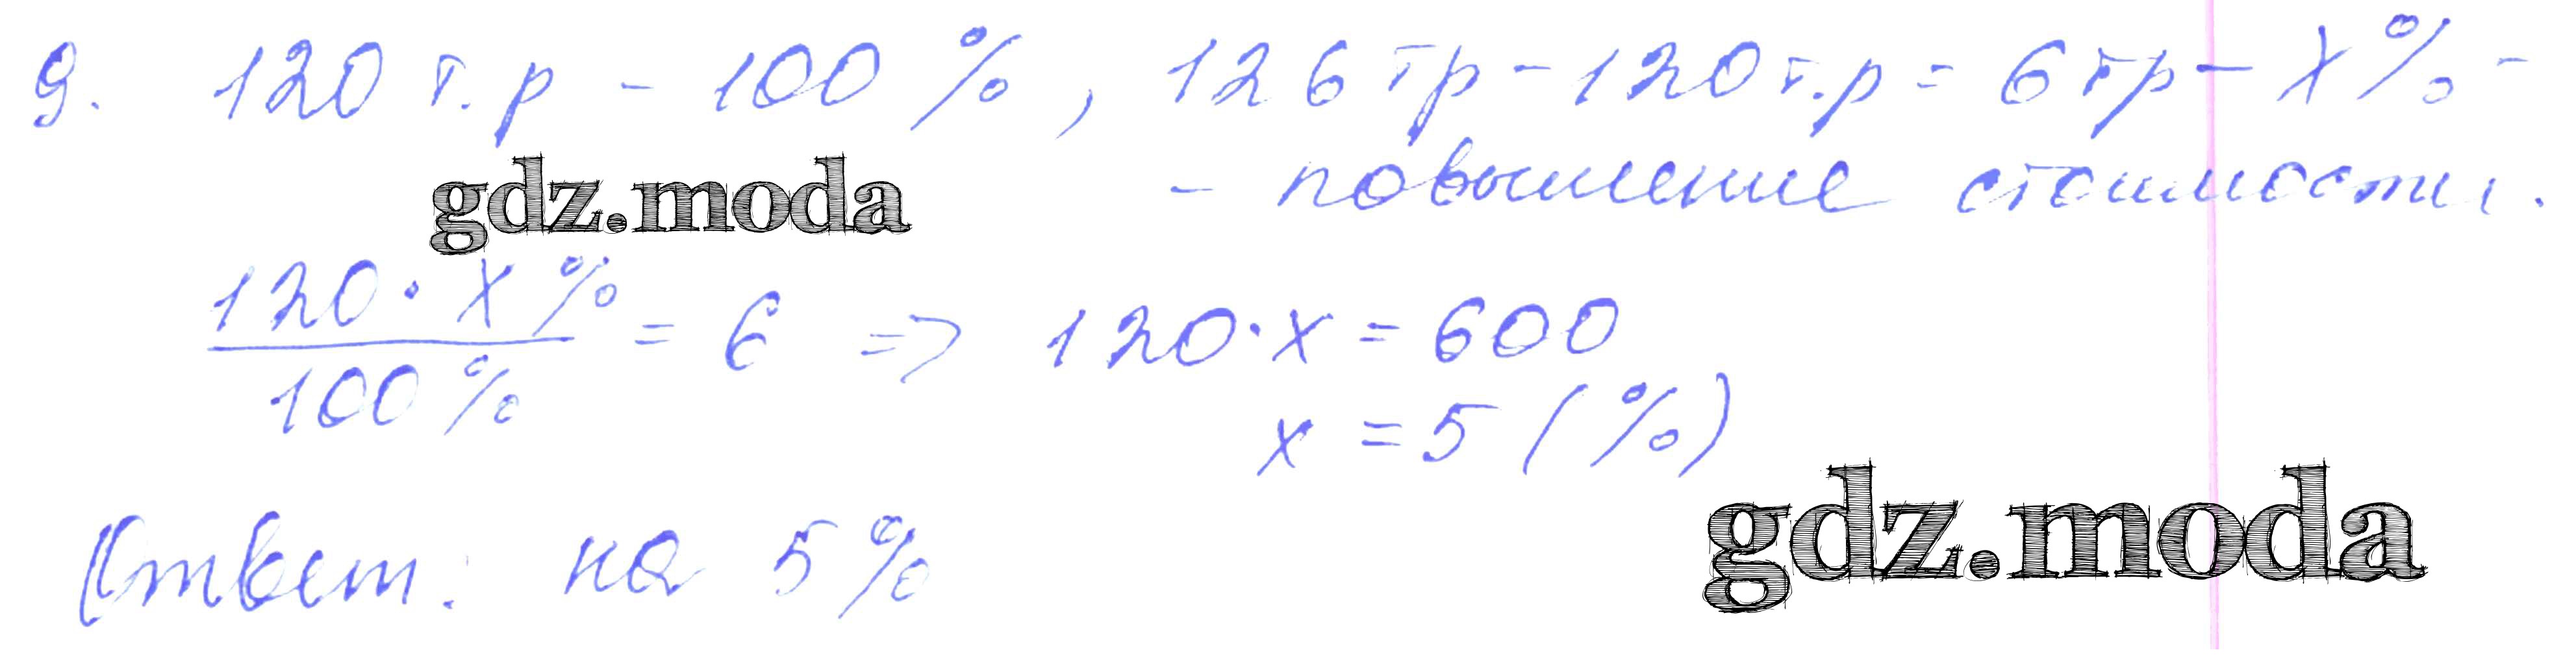 9. 120 т.р - 100 %, 126 тр - 120 т.р = 6 тр - X% -
- повышение стоимости.
gdz.moda
120 · X % / 100 % = 6 => 120 · x = 600
x = 5 (%)
Ответ: на 5 %
gdz.moda